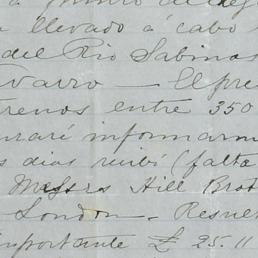 llevado á cabo
del Rio Sabinas
El pre
renos entre 350
raré informarm
s dias recibí (falta
Messrs Hill Brot
London. Resuel
mportante £ 25.11